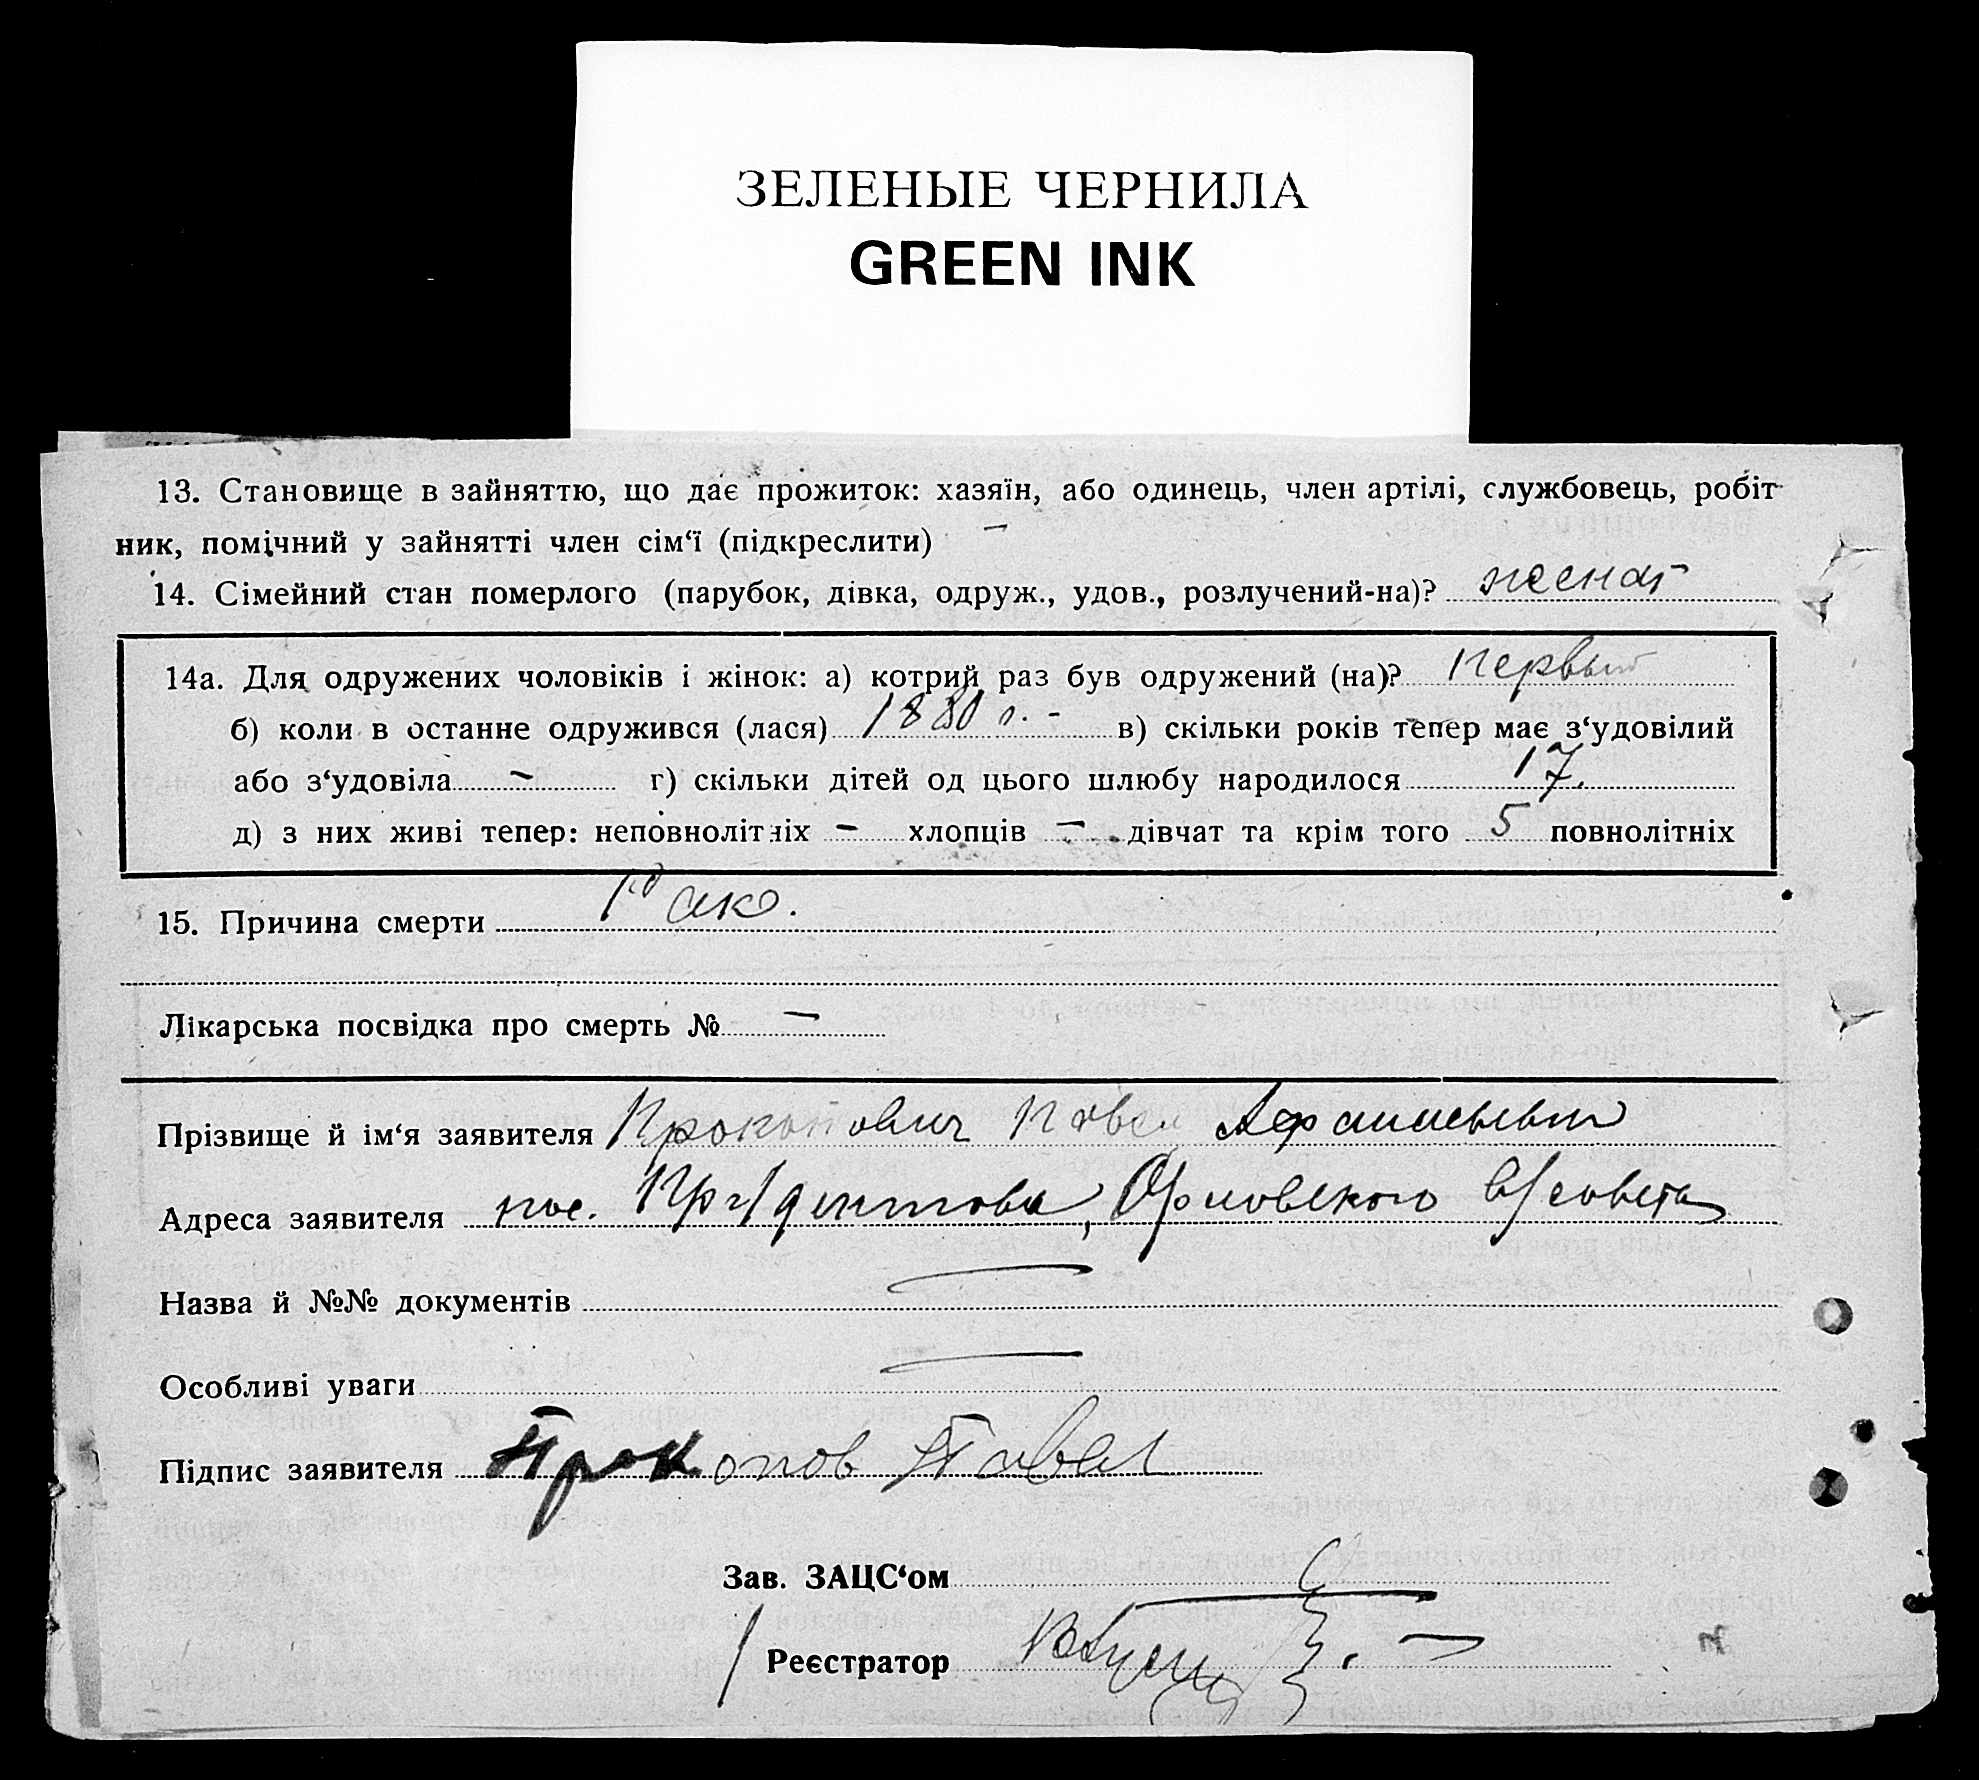 ЗЕЛЕНЫЕ ЧЕРНИЛА
GREEN INK
13. Становище в зайняттю, що дає прожиток: хазяїн, або одинець, член артілі, службовець, робіт-
ник, помічний у зайнятті член сім‘ї (підкреслити) –
14. Сімейний стан померлого (парубок, дівка, одруж., удов., розлучений-на)? женат
14а. Для одружених чоловіків і жінок: а) котрий раз був одружений (на)? первый
б) коли в останне одружився (лася) 1880 г. - в) скільки років тепер має з‘удовілий
або з‘удовіла – г) скільки дітей од цього шлюбу народилося 17.
д) з них живі тепер: неповнолітніх – хлопців – дівчат та крім того 5 повнолітніх
15. Причина смерти Рак.
Лікарська посвідка про смерть № –
Прізвище й ім‘я заявителя Прокопович Павел
Адреса заявителя пос. Орловского с/совета
Назва й №№ документів —
Особливі уваги —
Підпис заявителя Прокопов Павел
Зав. ЗАЦС‘ом
Реєстратор